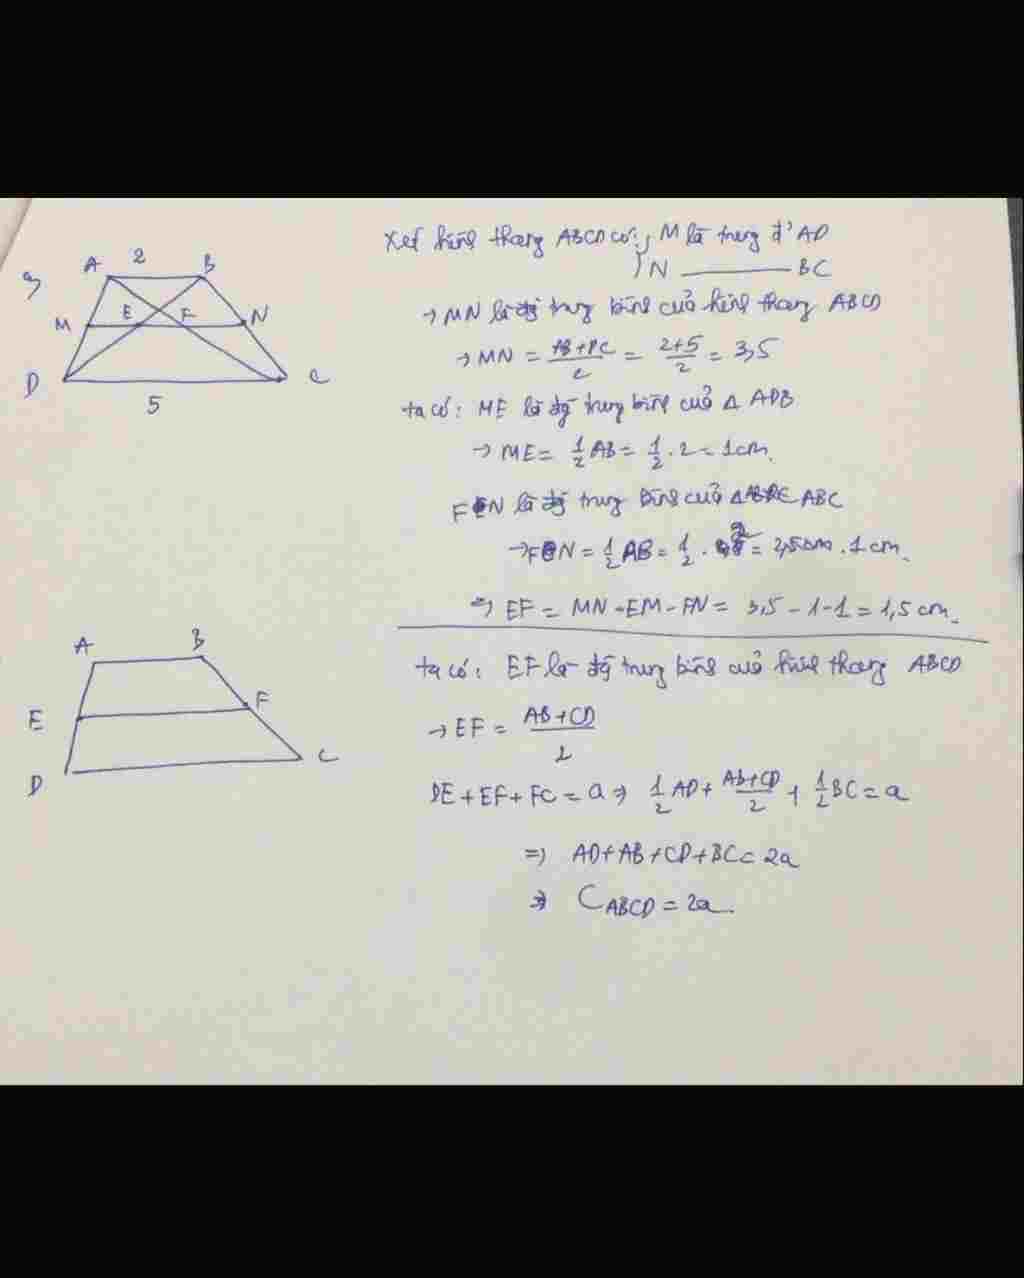 A 2 B
M E F N
D C
5
Xét hình thang ABCD có: M là trung đ' AD
N ——— BC
→ MN là đg trung bình của hình thang ABCD
→ MN = AB+DC/2 = 2+5/2 = 3,5
ta có: ME là đg trung bình của Δ ADB
→ ME = 1/2 AB = 1/2 . 2 = 1cm.
FN là đg trung bình của Δ ABC
→ FN = 1/2 AB = 1/2 . 2 = 1 cm.
⇒ EF = MN - EM - FN = 3,5 - 1 - 1 = 1,5 cm.
A B
E F
D C
ta có: EF là đg trung bình của hình thang ABCD
→ EF = AB+CD/2
DE + EF + FC = a ⇒ 1/2 AD + AB+CD/2 + 1/2 BC = a
⇒ AD + AB + CD + BC = 2a
⇒ C ABCD = 2a.